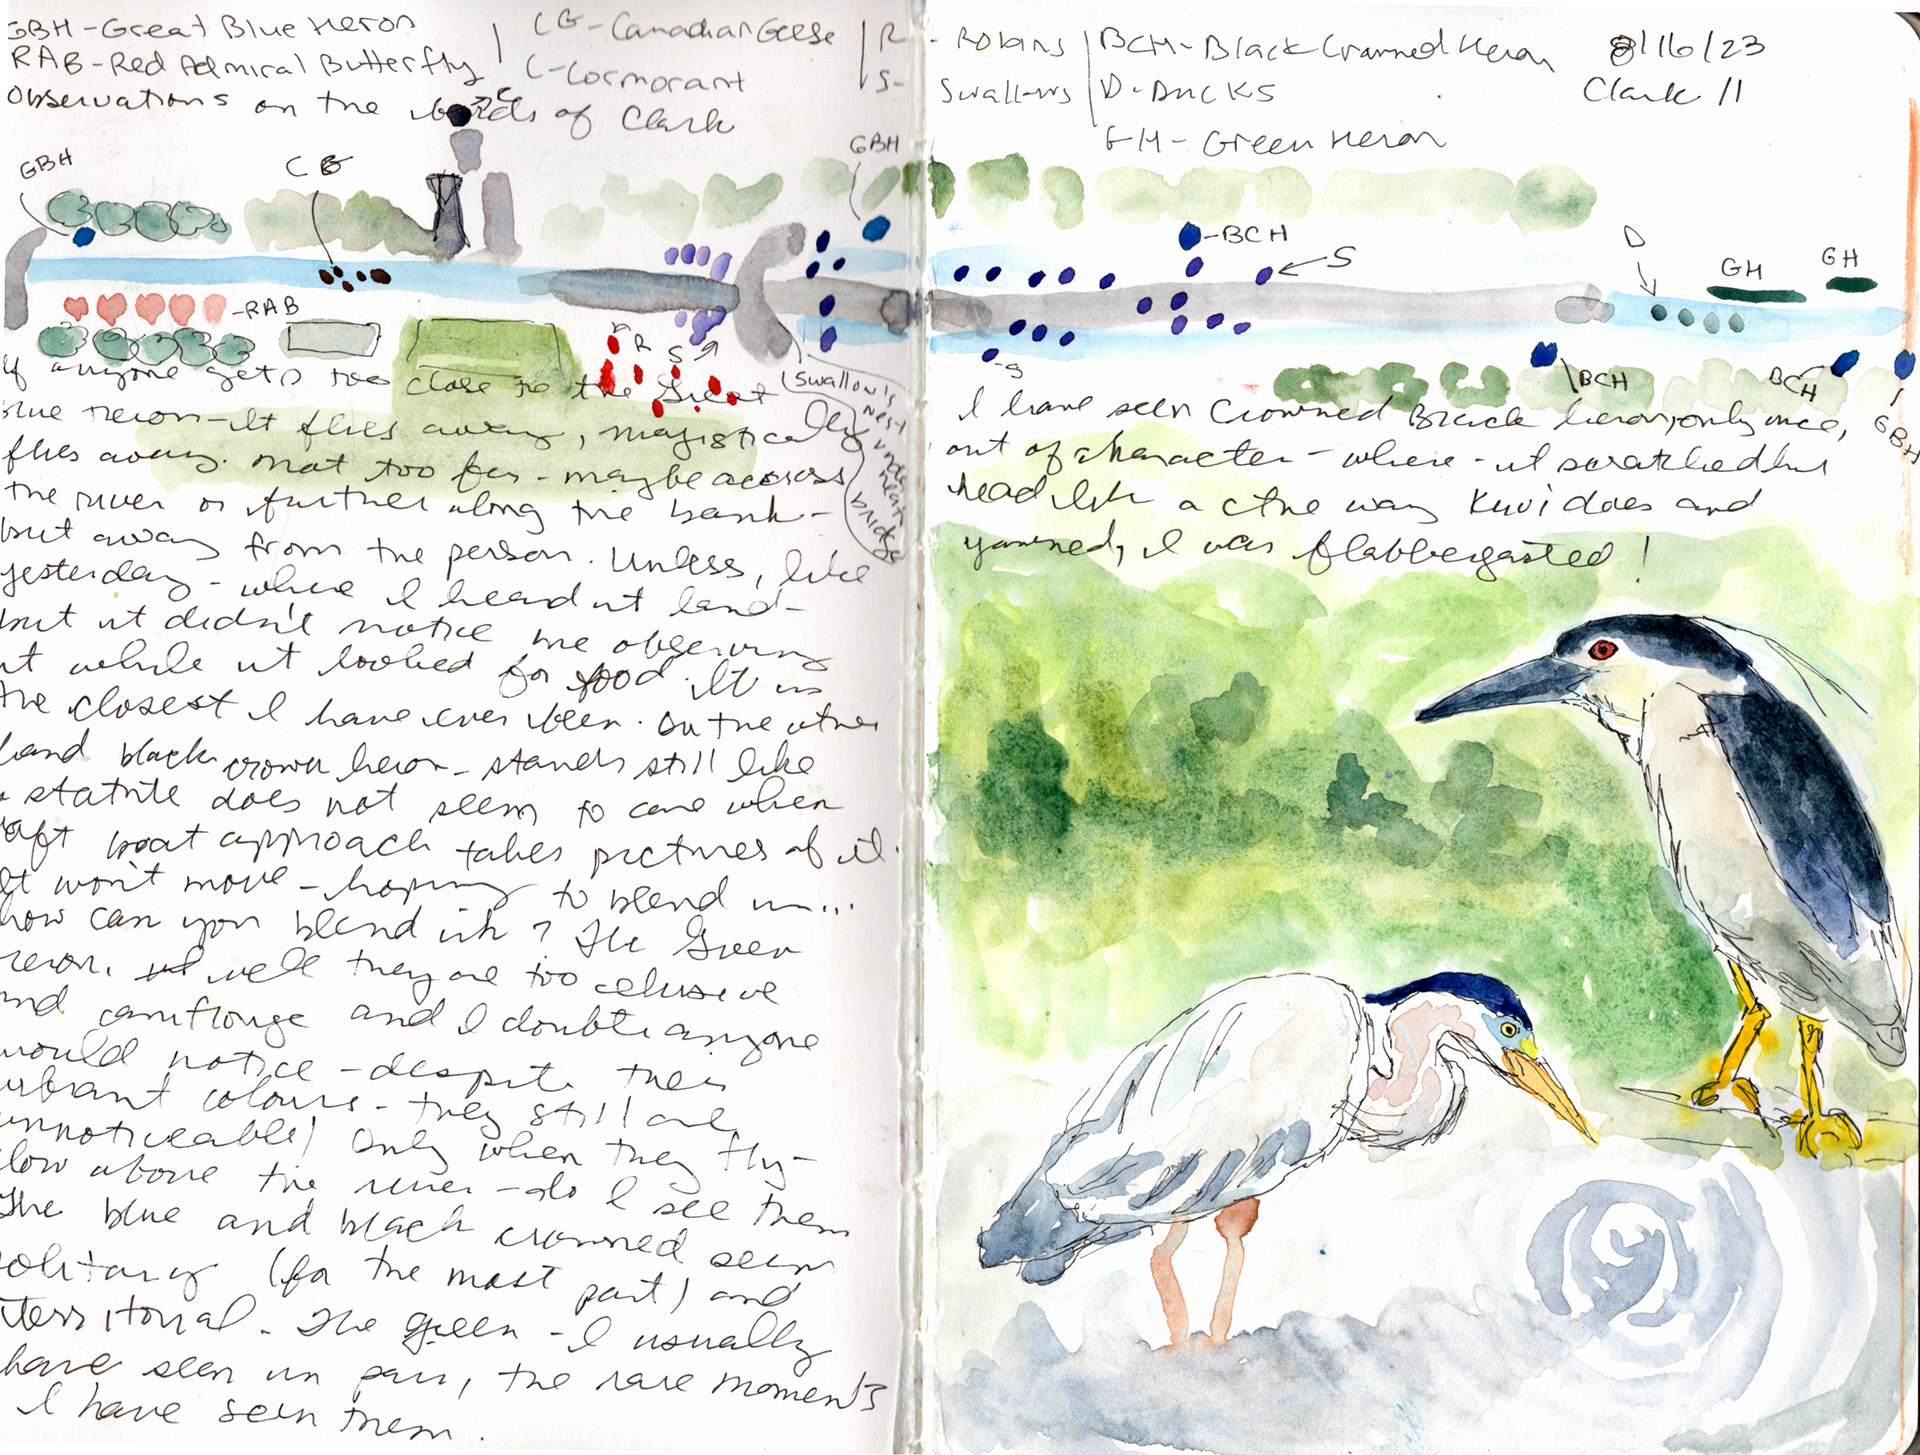 GBH-Great Blue Heron
RAB-Red Admiral Butterfly
CG-Canadian Geese
C-Cormorant
R - Robins
S- Swallows
BCH-Black Crowned Heron
D-Ducks
GH-Green Heron
8/16/23
Clark 11
Observations on the birds of Clark
C
GBH
CG
GBH
BCH
S
D
GH
GH
-RAB
r
R
S
S
BCH
BCH
GBH
(swallow's nest underneath bridge
If anyone gets too close to the Great
blue heron-it flies away, majistically
flies away. not too far - maybe across
the river or further along the bank-
but away from the person. Unless, like
yesterday - where I heard it land-
but it didn't notice me observing
it while it looked for food. It is
the closest I have ever been. On the other
hand black crown heron - stands still like
a statute does not seem to care when
raft boat approach takes pictures of it.
It won't move - hoping to blend in...
how can you blend in? The Green
heron, well they are too elusive
and camflouge and I doubt anyone
would notice - despite their
vibrant colours - they still are
unnoticeable! Only when they fly-
low above the river - do I see them
The blue and black crowned seem
solitary (for the most part) and
territorial. The green - I usually
have seen in pair, the rare moments
I have seen them.
I have seen Crowned Black heron, only once,
out of character - where - it scratched his
head like a the way Kiwi does and
yawned, I was flabbergasted!